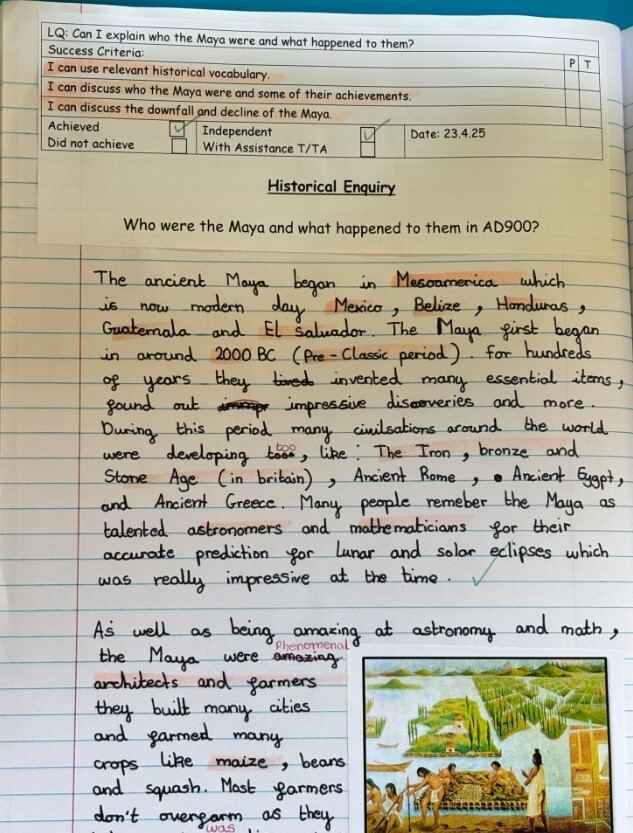 LQ: Can I explain who the Maya were and what happened to them?
Success Criteria:
P T
I can use relevant historical vocabulary.
I can discuss who the Maya were and some of their achievements.
I can discuss the downfall and decline of the Maya.
Achieved Independent Date: 23.4.25
Did not achieve With Assistance T/TA
Historical Enquiry
Who were the Maya and what happened to them in AD900?
The ancient Maya began in Mesoamerica which
is now modern day Mexico, Belize, Honduras,
Guatemala and El Salvador. The Maya first began
in around 2000 BC (Pre-Classic period). For hundreds
of years they lived invented many essential items,
found out impressive discoveries and more.
During this period many civilsations around the world
were developing too, like: The Iron, bronze and
Stone Age (in britain), Ancient Rome, Ancient Egypt,
and Ancient Greece. Many people remeber the Maya as
talented astronomers and mathematicians for their
accurate prediction for lunar and solar eclipses which
was really impressive at the time.
As well as being amazing at astronomy and math,
Phenomenal
the Maya were amazing
architects and farmers
they built many cities
and farmed many
crops like maize, beans
and squash. Most farmers
don't overfarm as they
was